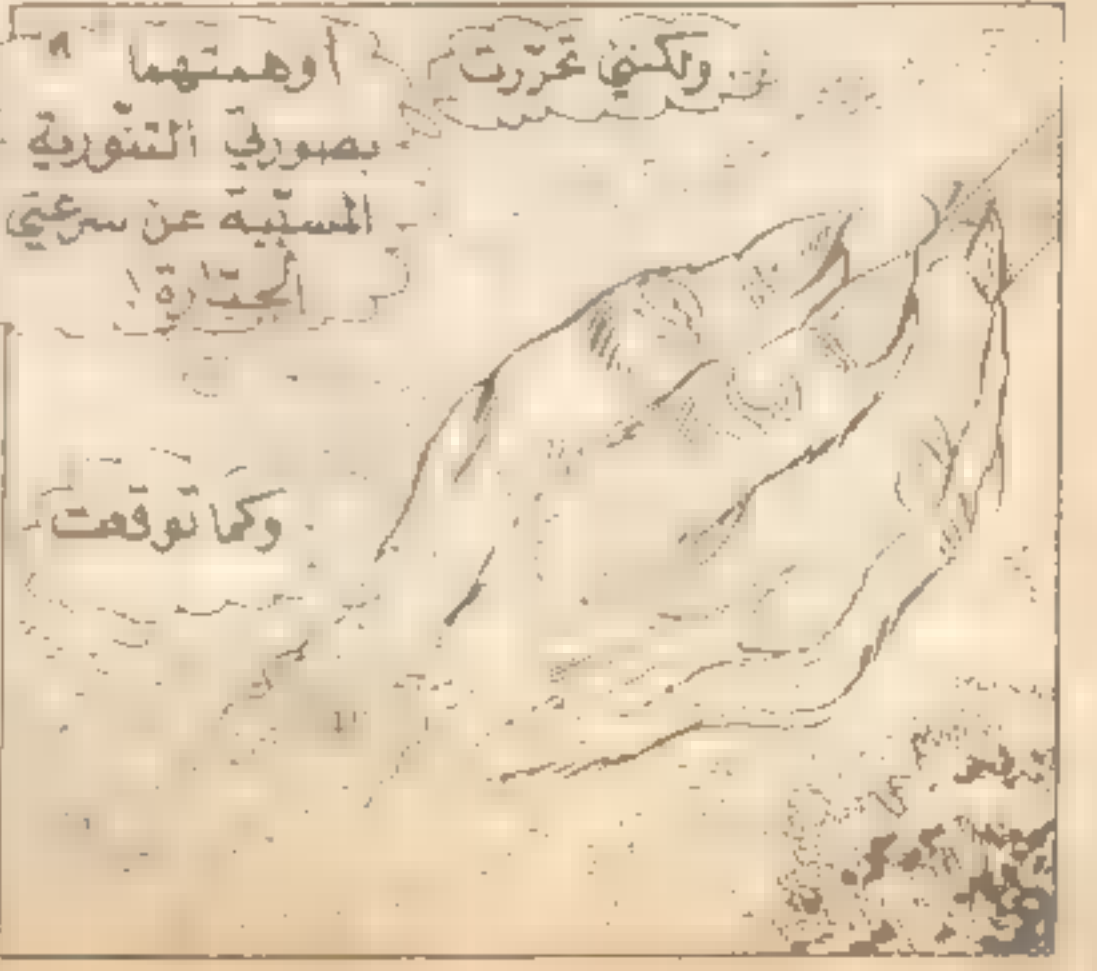 ولكني تحررت
أوهمتهما
بصورتي التنورية
المسبّبة عن سرعتي
الجبّارة!
وكما توقعت